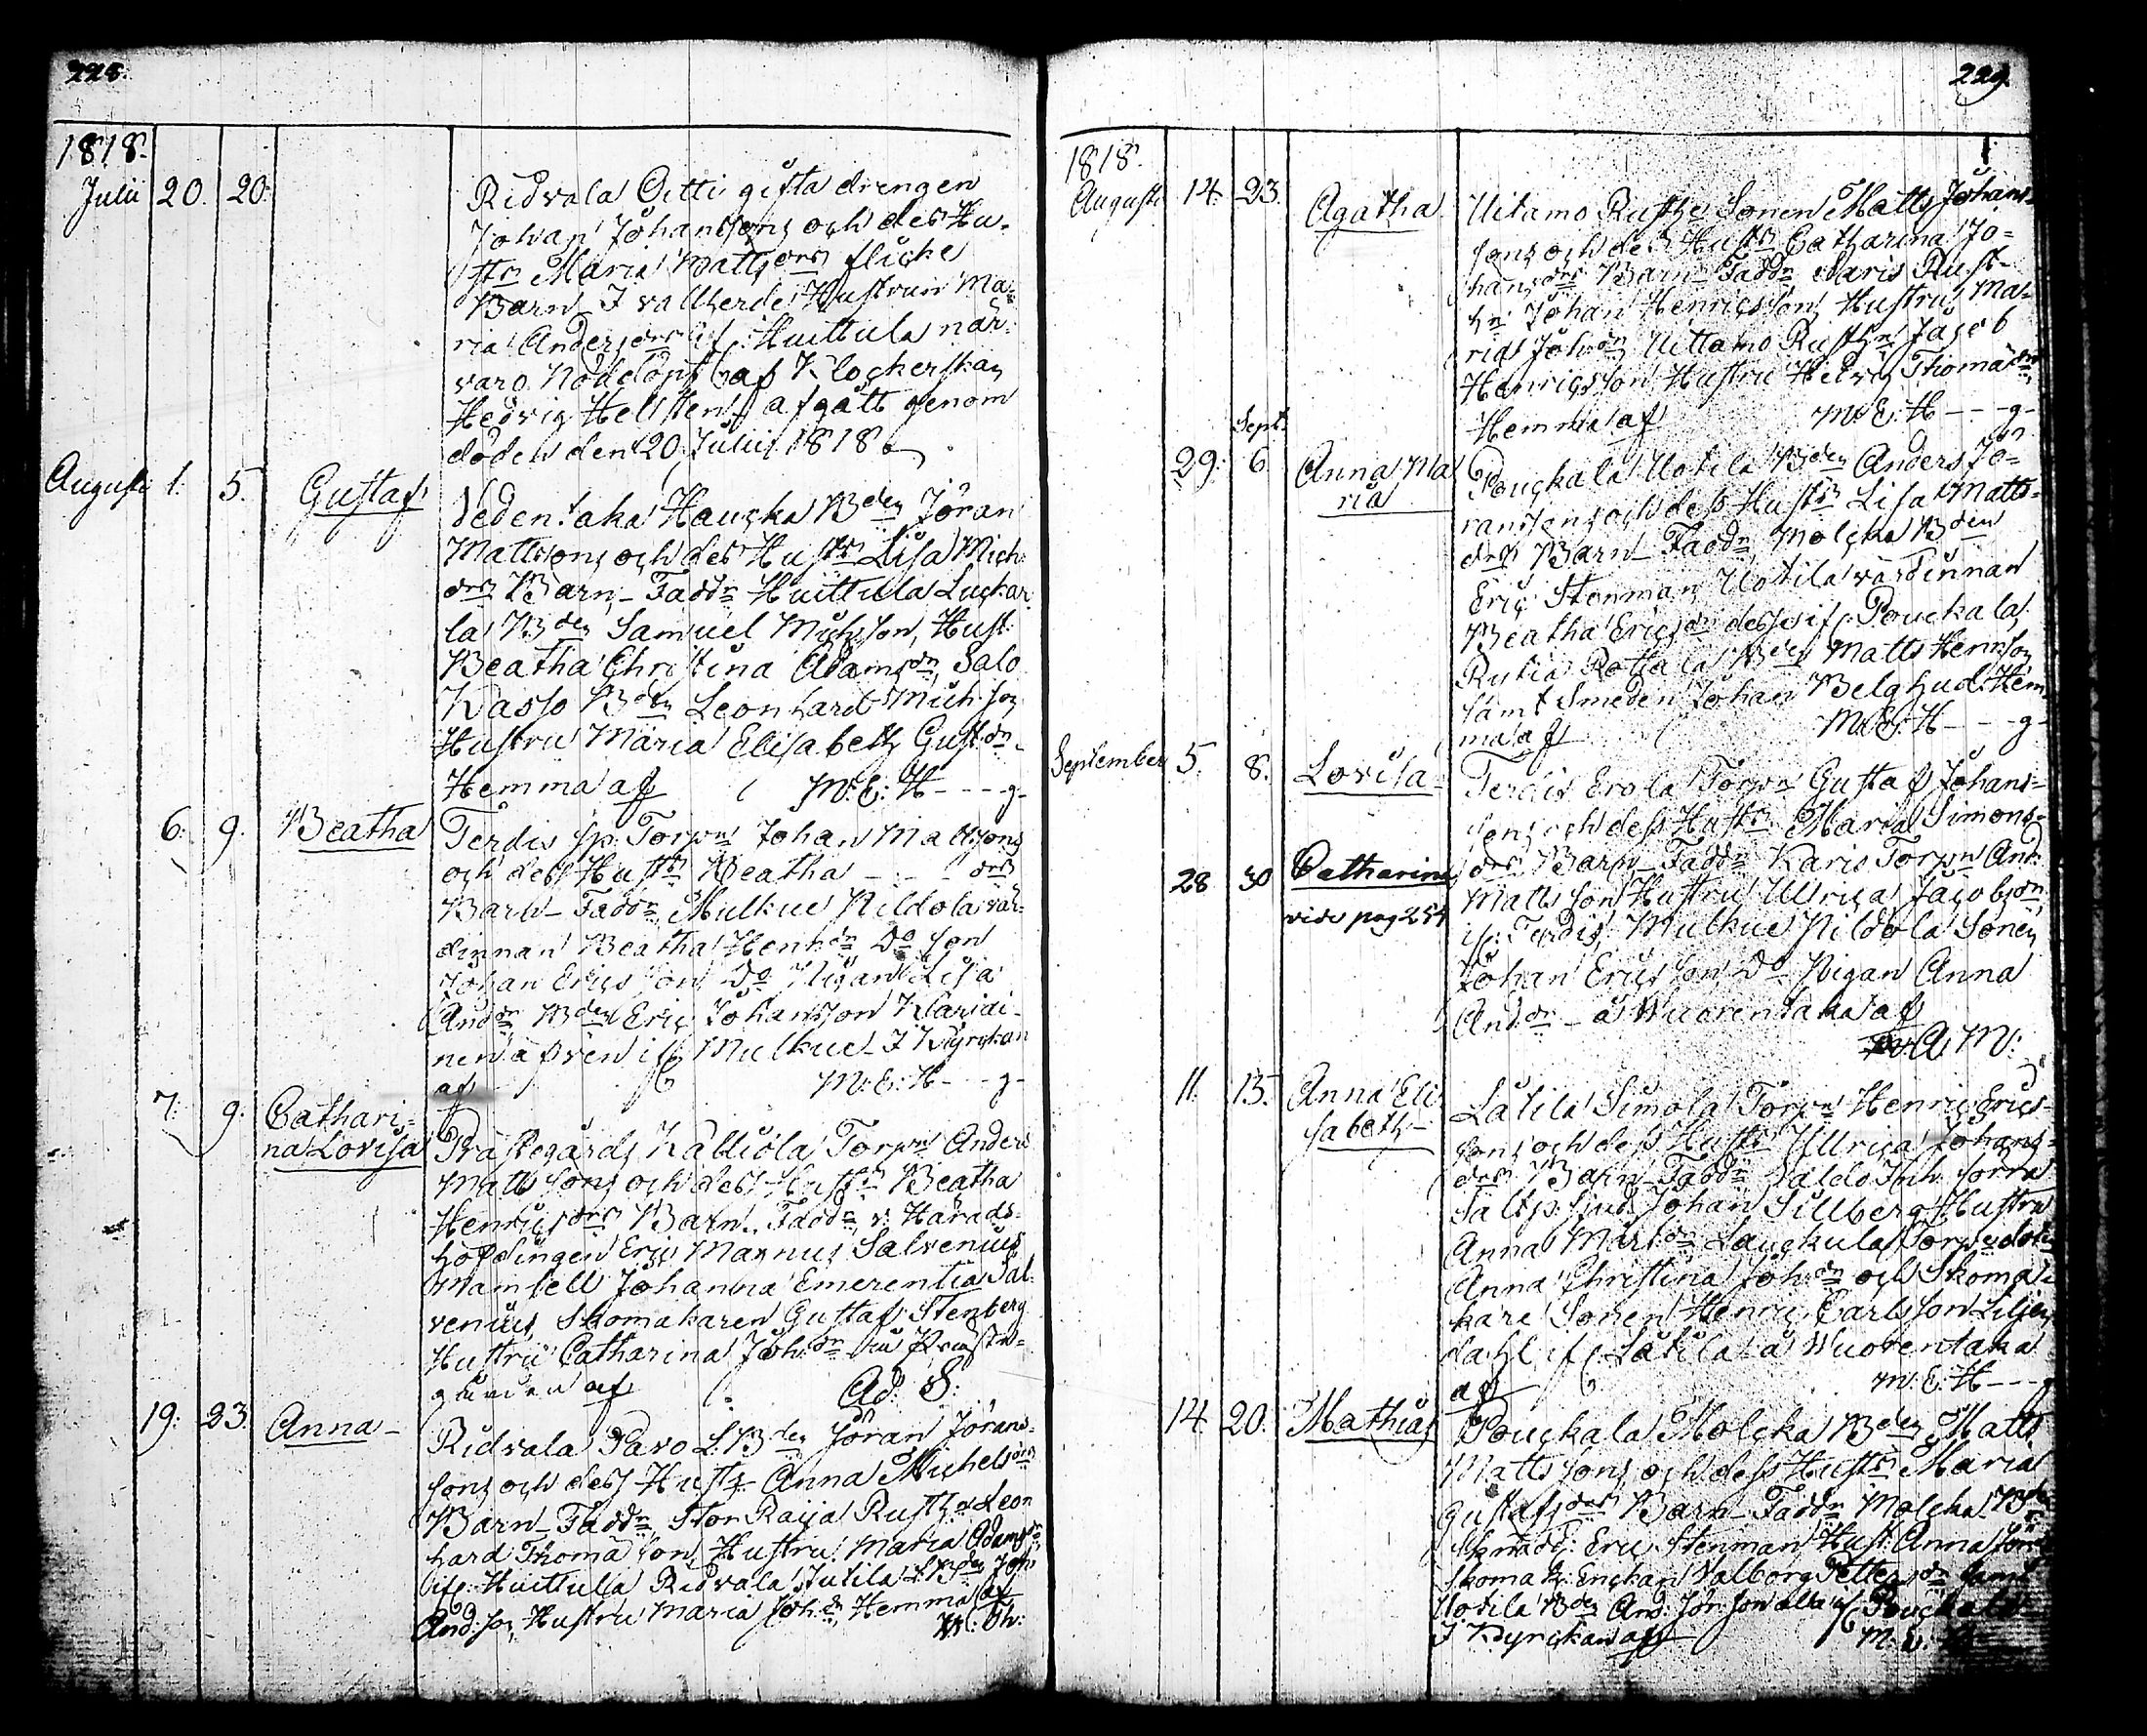 228.
1818.
Julii 20. 20.
Ridvala Oitti gifta drengen
Johan Johanssons och des Hu-
strs Maria Mattsdrs flicke
Barn I vallherde Hustrun Ma-
ria Andersdrs if. Huittula när-
varo Nöddöpt af Klockerskan
Hedvig Hellsten afgått genom
döden den 20 Julii 1818
Augusti 1. 5. Gustaf
Vedentaka Haucka Bden Jöran
Mattssons och des Hustrs Lisa Mich
drs Barn Faddr Huittula Luckar
la Bden Samuel Michsson, Hust.
Beatha Christina Adamsdr, Salo
Kasso Bden Leonhard Michson
Hustru Maria Elisabeth Gustdr
Hemma af M: E: H---g-
6. 9. Beatha
Terdis sp. Torpn Johan Mattssons
och dess Hustrs Beatha --- drs
Barn Faddr Mulkue Nildola vär-
dinnan Beatha Henrdr Do son
Johan Ericsson Do Pigan Lisa
Anddr Bden Eric Johansson Klariai-
nen äfven if. Mulkue I Kyrckan
af M: E: H---g-
7. 9. Cathari-
na Lovisa
Prästegårds Källiola Torpn Anders
Matts sons och des Hustrs Beatha
Henricsdrs Barn. Faddr v. Härads-
höfdingen Eric Magnus Salvenius
Mamsell Johanna Emerentia Sal-
venius, Skomakaren Gustaf Stenberg
Hustru Catharina Johdr
af Ad. S.
19. 23. Anna
Ridvala Pavo L.Bden Jöran Jörans-
sons och dess Hustrs Anna Michelsdrs
Barn Faddr, Stor Raija Rusth. Leon
hard Thomasson, Hustru Maria Adamsdr
if. Huittula Ridvala Jutila L.Bden Joh
And:son, Hustru Maria Johdr, Hemma af
229.
1818.
Augusti 14. 23. Agatha
Uitamo Rusth. Sonen Matts Johans-
sons och des Hustrs Catharina Jo-
hansdrs Barn Faddr Karis Rust-
hn Johan Henricsson, Hustru Ma-
ria Johdr, Uittamo Rusthn Jacob
Henricsson Hustru Hedvig Thomædr
Hemma af M: E: H---g-
Sept.
29. 6. Anna Ma
ria
Pouckala Uotila Bden Anders Jö-
ranssons och dess Hustrs Lisa Matts-
drs Barn Faddr, Molcka Bden
Eric Stenman, Uotila värdinnan
Beatha Ericsdr dess if. Pouckala
Rutia Bden Matts Henrson
samt Smeden Johan Hem
ma af M: E: H---g-
September 5. 8. Lovisa
Terdis Erola Torpn Gustaf Johans-
sons och dess Hustrs Maria Simons-
drs Barn Faddr Karis Torpn And.
Matts son Hustru Ulrica Jacobsdr
if. Terdis, Mulkue Nildola Sonen
Johan Ericsson Do Pigan Anna
Anddr å Wuorentaka af
A: M:
28 30 Catharina
vide pag 254
11. 13. Anna Eli
sabeth
Lätilä Simola Torpn Henric Erics-
sons och dess Hustrs Ullrica Johans-
drs Barn Faddr
Johan Sillberg Hustru
Anna Mårtdr Lauckula Torp
Anna Christina Johdr och Skoma-
kare Sonen Henric Carlsson Liljen
dahl if. Lätilä å Wuorentaka
af M: E: H---
14. 20. Mathias
Pouckala Molcka Bden Matts
Matts sons och dess Hustrs Maria
Gustafsdrs Barn Faddr Molcka Bden
Eric Stenman Hust. Anna
Skomak. Enckan Valborg Pettersdr samt
Uotila Bden And. Jör.son alla if. Pouckala
I Kyrckan af M: E: